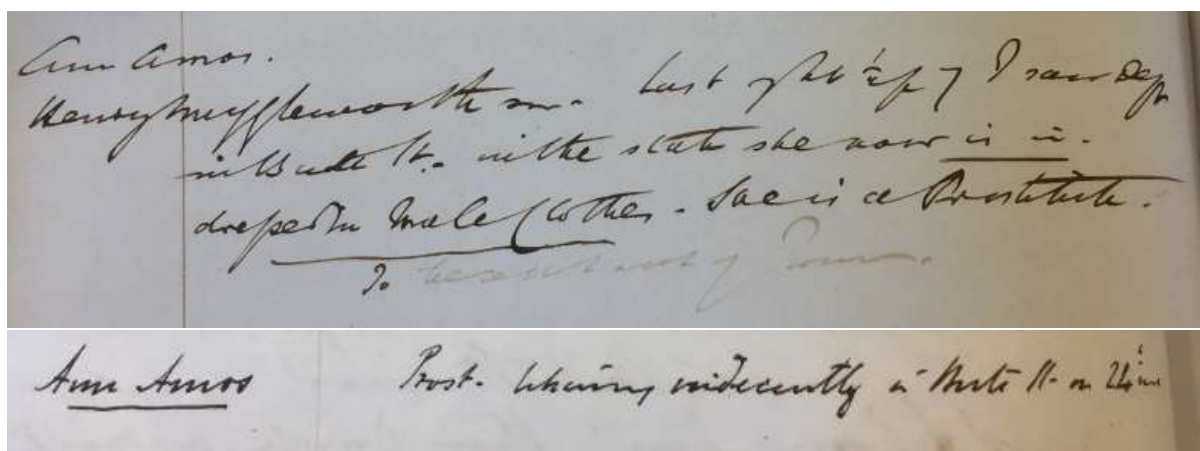 Ann Amos.
Henry Muggleworth sw. Last night ½ p 7 I saw Deft
in Bute St. in the state she now is in.
dressed in Male Clothes. She is a Prostitute.
To be sent out of Town.
Ann Amos Prost. behaving indecently in Bute St. on 24 inst